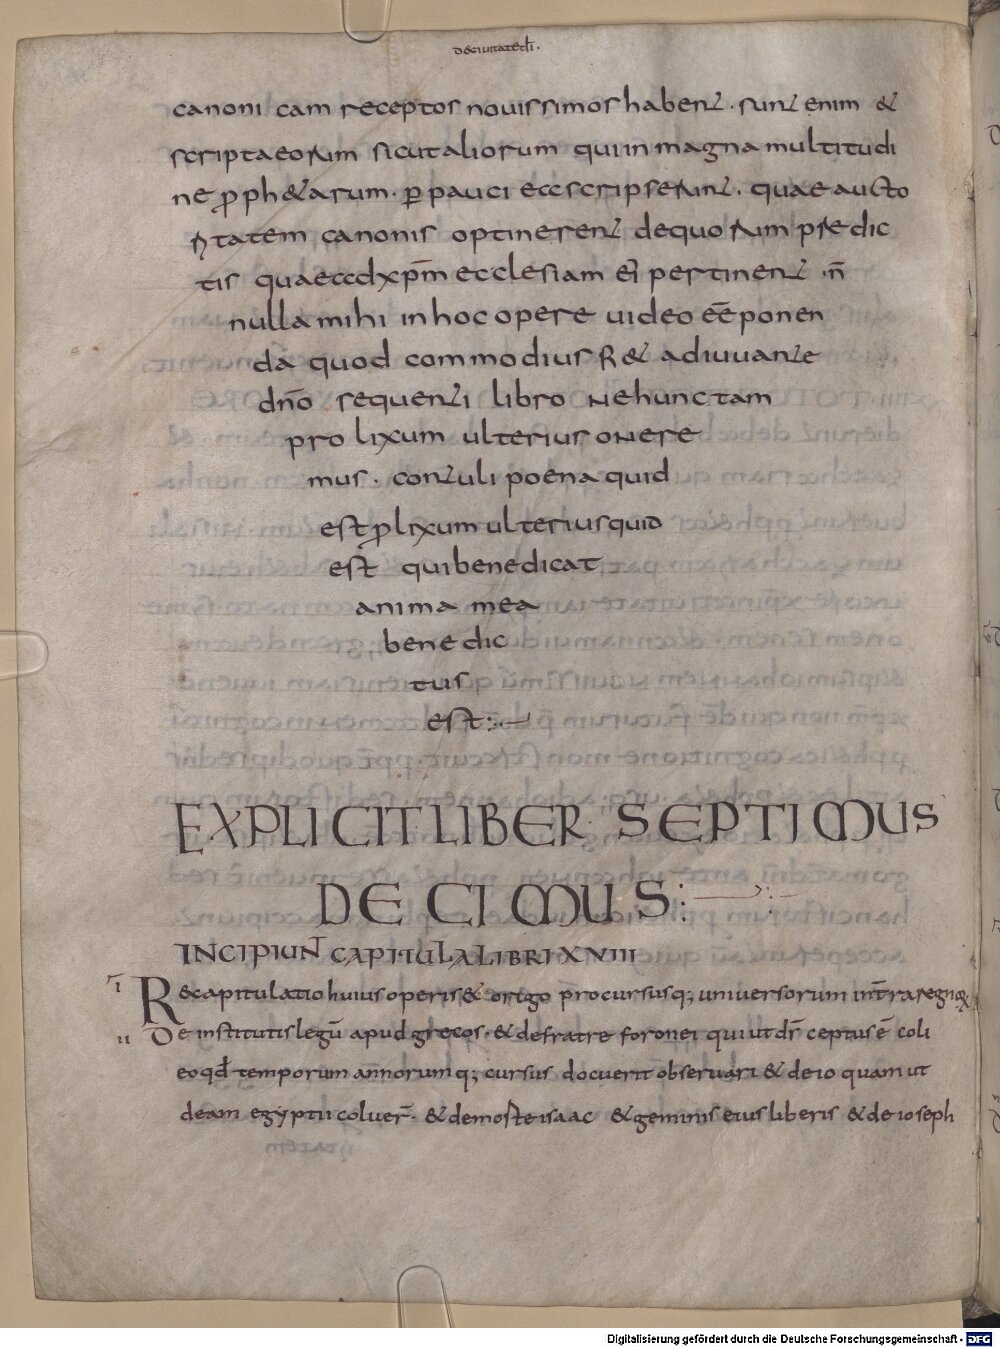 de ciuitate dī ·
canoni cam receptos nouissimos habent · sunt enim &
scripta eorum sicut aliorum qui in magna multitudi
ne ꝓph&arum · ꝑpauci ecscripserunt · quae aucto
ritatem canonis optinerent de quorum predic
tis quae ad xp̄m ecclesiam ei pertinent · n̄
nulla mihi in hoc opere uideo eē ponen
da quod commodius fi& adiuuante
dn̄o sequenti libro ne hunc tam
prolixum ulterius onere
mus · contuli poena quid
est ꝓlixum ulterius quid
est qui benedicat
anima mea
benedic
tus
est :
EXPLICIT LIBER SEPTIMUS
DECIMUS :
INCIPIUNT CAPITULA LIBRI XVIII
ī R&capitulatio huius operis & origo procursusq; uniuersorum int̄ra regnoꝝ
ii De institutis legū apud grecos · & de fratre foronei qui ut dr̄ ceptus ē coli
eo qđ temporum annorumq; cursus docuerit obseruari & de io quam ut
deam egyptii coluer̄ · & demoste isaac & geminis eius liberis & de ioseph
Digitalisierung gefördert durch die Deutsche Forschungsgemeinschaft - DFG